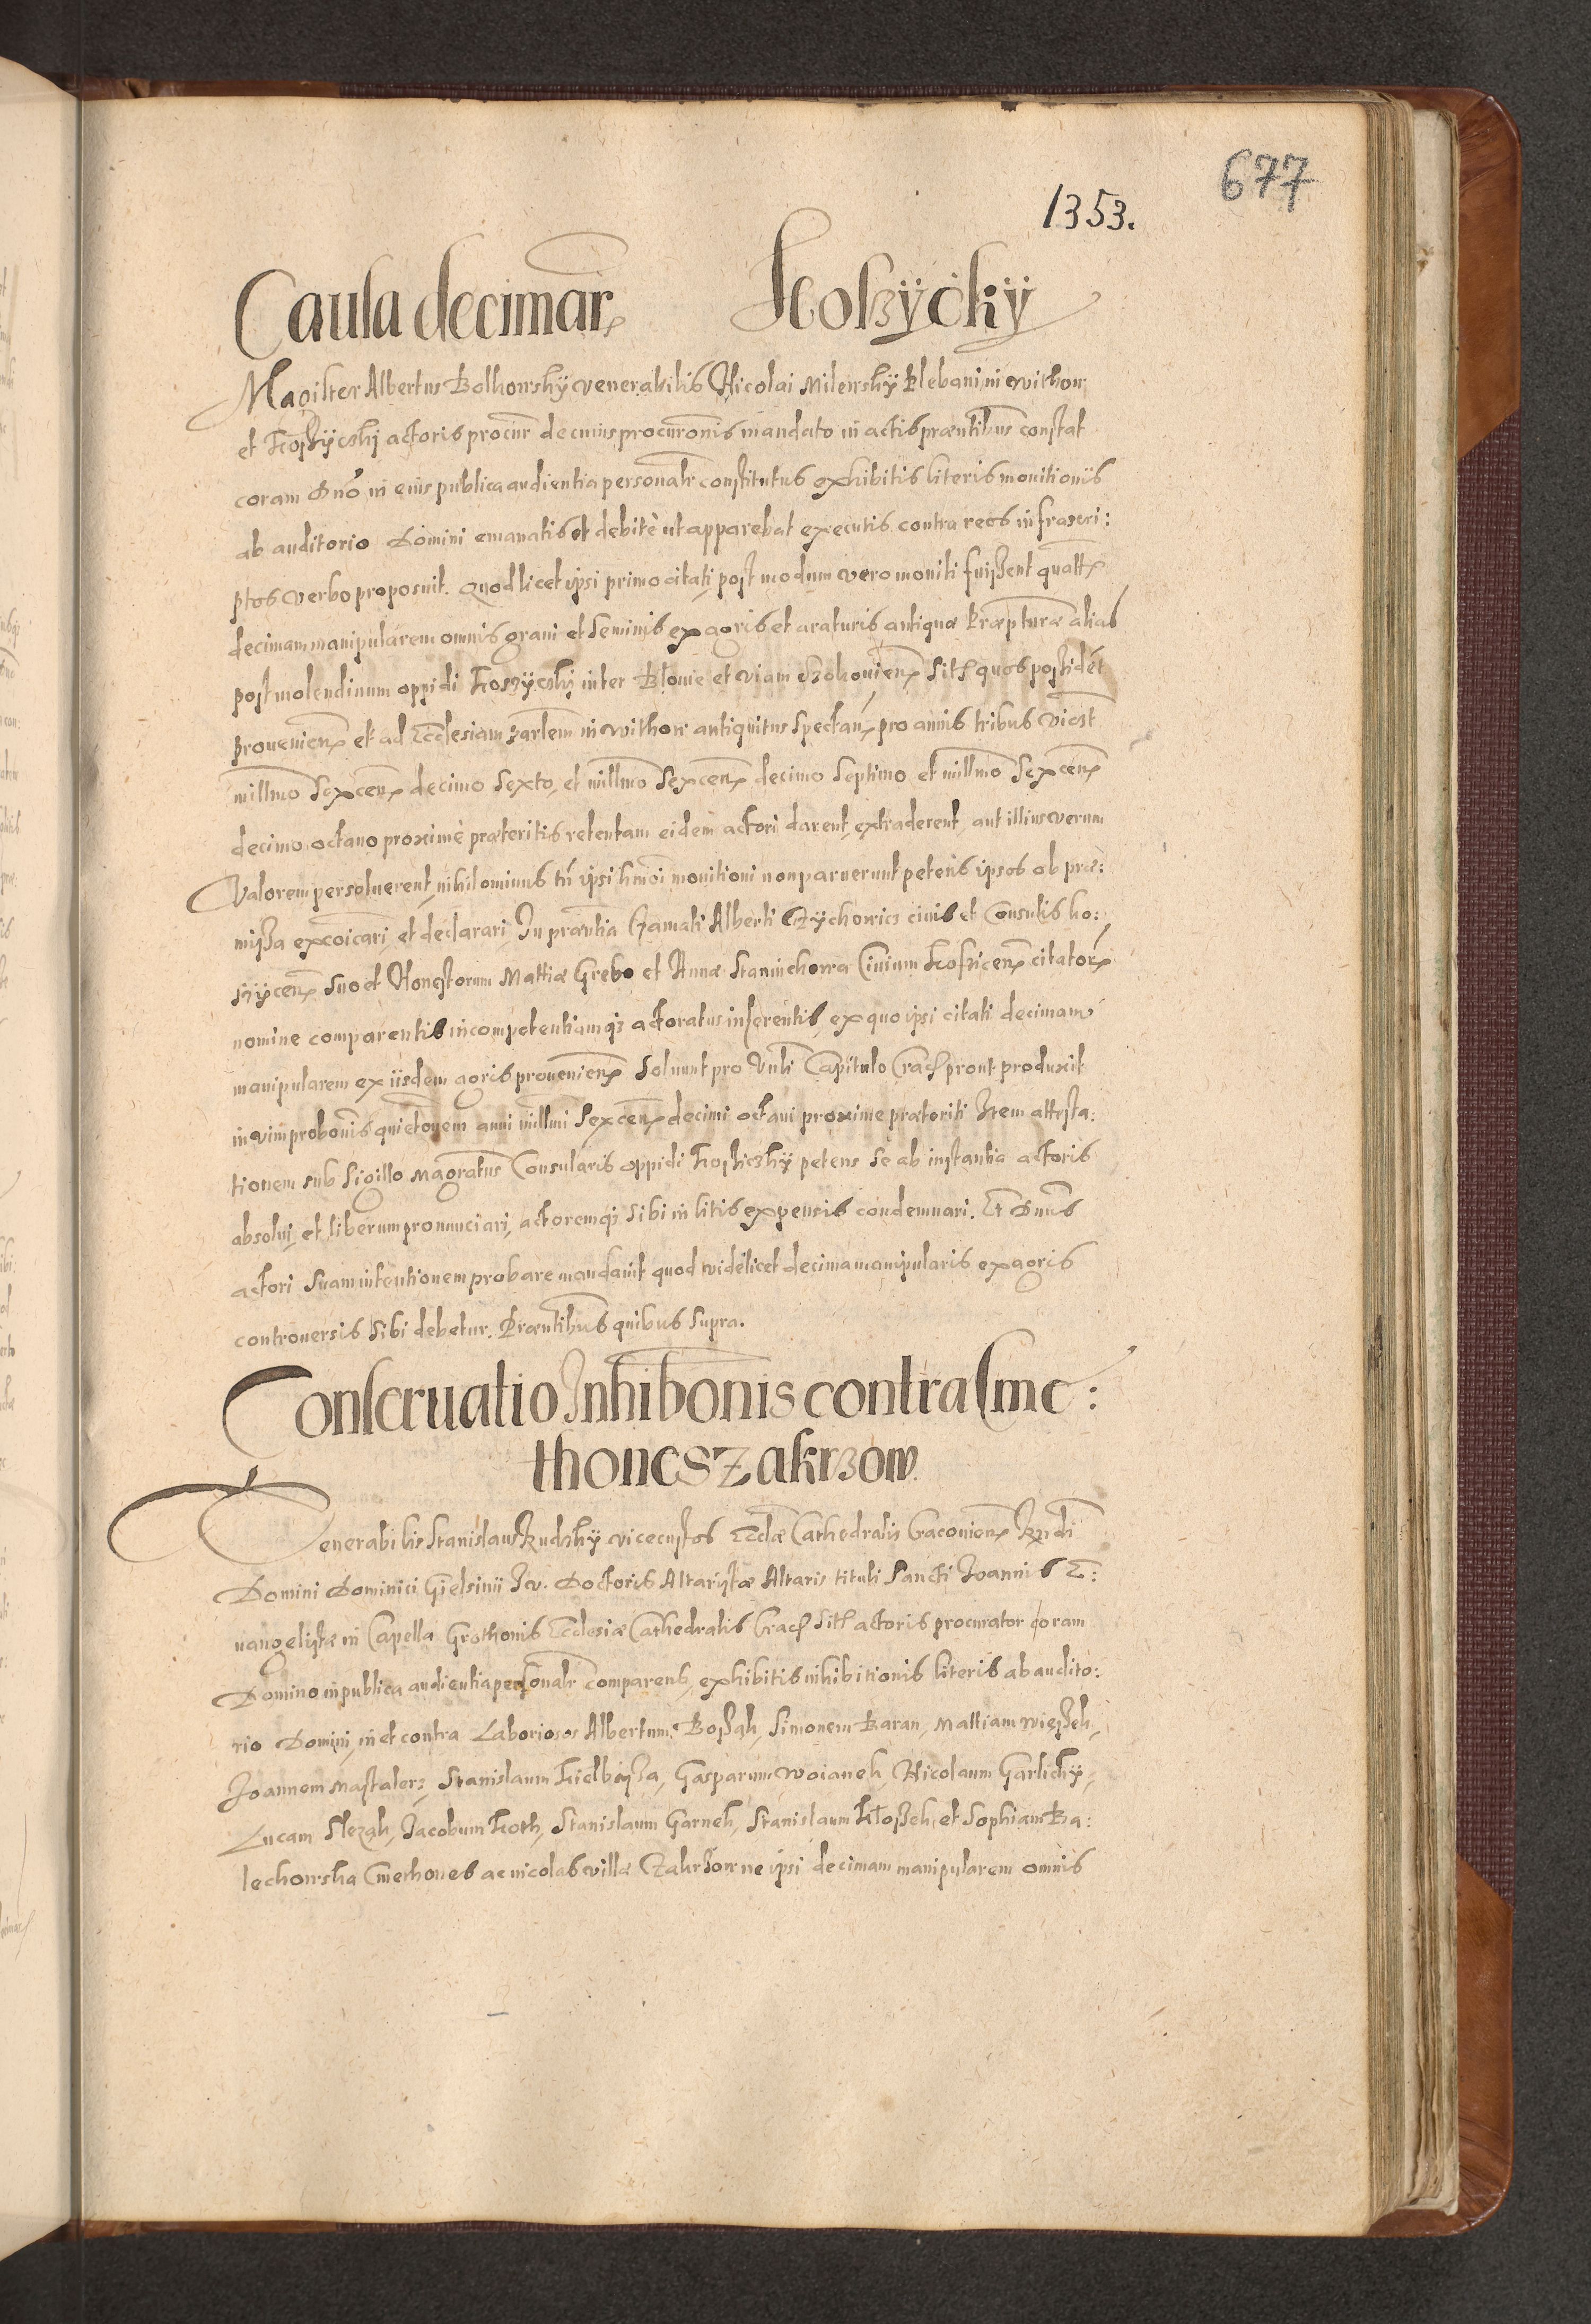 677
1353.
Causa decimar Koszyczky
Magister Albertus Bolkowsky venerabilis Nicolai Milewsky Plebani in Withow
et Koszyczky actoris procur de cuius procuronis mandato in actis præntibus constat
coram Dno in eius publica audientia personalr constitutus exhibitis literis monitionis
ab auditorio Domini emanatis et debitè ut apparebat executis contra reos infrascri:
ptos verbo proposuit. Quod licet ipsi primo citati post modum vero moniti fuissent quatts
decimam manipularem omnis grani et seminis ex agris et araturis antiquæ Præpturæ alias
post molendinum oppidi Koszyczky inter Błonie et viam sit quos possident
provenien et ad Ecclesiam parlem in Withow antiquitus spectan pro annis tribus viczt
millmo sexcen decimo sexto, et millmo sexcen decimo septimo et millmo sexcen
decimo octavo proximè præteritis retentam eidem actori darent, extraderent, aut illius verum
Valorem persolverent, nihilominus tn ipsi hmoi monitioni non paruerunt petens ipsos ob præ:
missa excoicari et declarari, In præntia Famati Alberti Zychowicz civis et Consulis Ko:
szycen suo et Honestorum Mattiæ Grebo et Annæ Staninchowa Civium Koszicen citator
nomine comparentis incompetentiamqз actoratus inferentis, ex quo ipsi citati decimam
manipularem ex iisdem agris provenien solvunt pro Vnli Capitulo Crac prout produxit
in vim probonis quietonem anni millmi sexcen decimi octavi proxime præteriti Item attesta:
tionem sub sigillo Magratus Consularis oppidi Kosziczky petens se ab instantia actoris
absolvi, et liberum pronunciari, actoremqз sibi in litis expensis condemnari. Et Dnus
actori suam intentionem probare mandavit quod videlicet decima manipularis ex agris
controversis sibi debetur. Præntibus quibus supra.
Conservatio Inhibonis contra Cme:
thones Zakrzow.
Venerabilis Stanislaus Rudzky vicecustos Eccłæ Cathedralis Cracovien Rndi
Domini Dominici Gielsinii Iv. Doctoris Altaristæ Altaris tituli Sancti Joannis E:
vangelistæ in Capella Grothonis Ecclesiæ Cathedralis Crac sit actoris procurator coram
Domino in publica audientia personalr comparens, exhibitis inhibitionis literis ab audito:
rio Domini, in et contra Laboriosos Albertum Bossak, Simonem Baran, Mattiam Wieszek,
Joannem Mastalerz, Stanislaum Kielbassa, Gasparum Woianek, Nicolaum Garlicky,
Lucam Slezak, Jacobum Koth, Stanislaum Garnek, Stanislaum Kłossek, et Sophiam Ba:
lechowska Cmethones ac incolas villæ Zakrzow ne ipsi decimam manipularem omnis